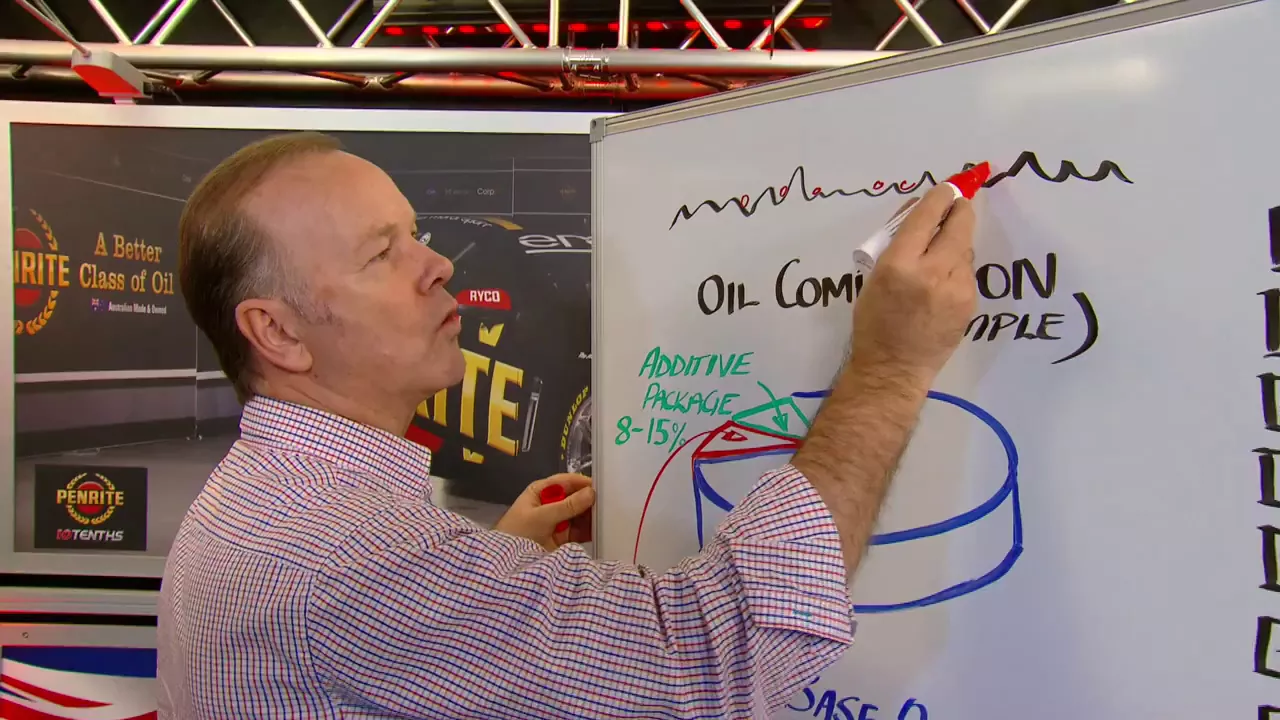 Corp
RITE
A Better
Class of Oil
Australian Made & Owned
RYCO
ITE
DUNLOP
PENRITE
10TENTHS
OIL COM
ON
MPLE)
ADDITIVE
PACKAGE
8-15%
BASE O